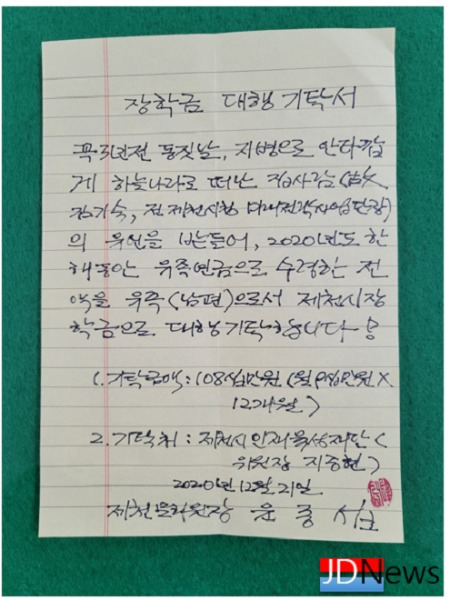 장학금 대행 기탁서
꼭 3년전 동짓날, 지병으로 안타깝
게 하늘나라로 떠난 집사람(故人
김기숙, 전 제천시청 미래전략사업단장)
의 유언을 받들어, 2020년도 한
해동안 유족연금으로 수령한 전
액을 유족(남편)으로서 제천시장
학금으로 대행기탁합니다!
1. 기탁금액: 108십만원 (월 9십만원 X
12개월)
2. 기탁처: 제천시인재육성재단(
위원장 지중현)
2020년 12월 21일
제천문화원장 윤종섭
JDNews